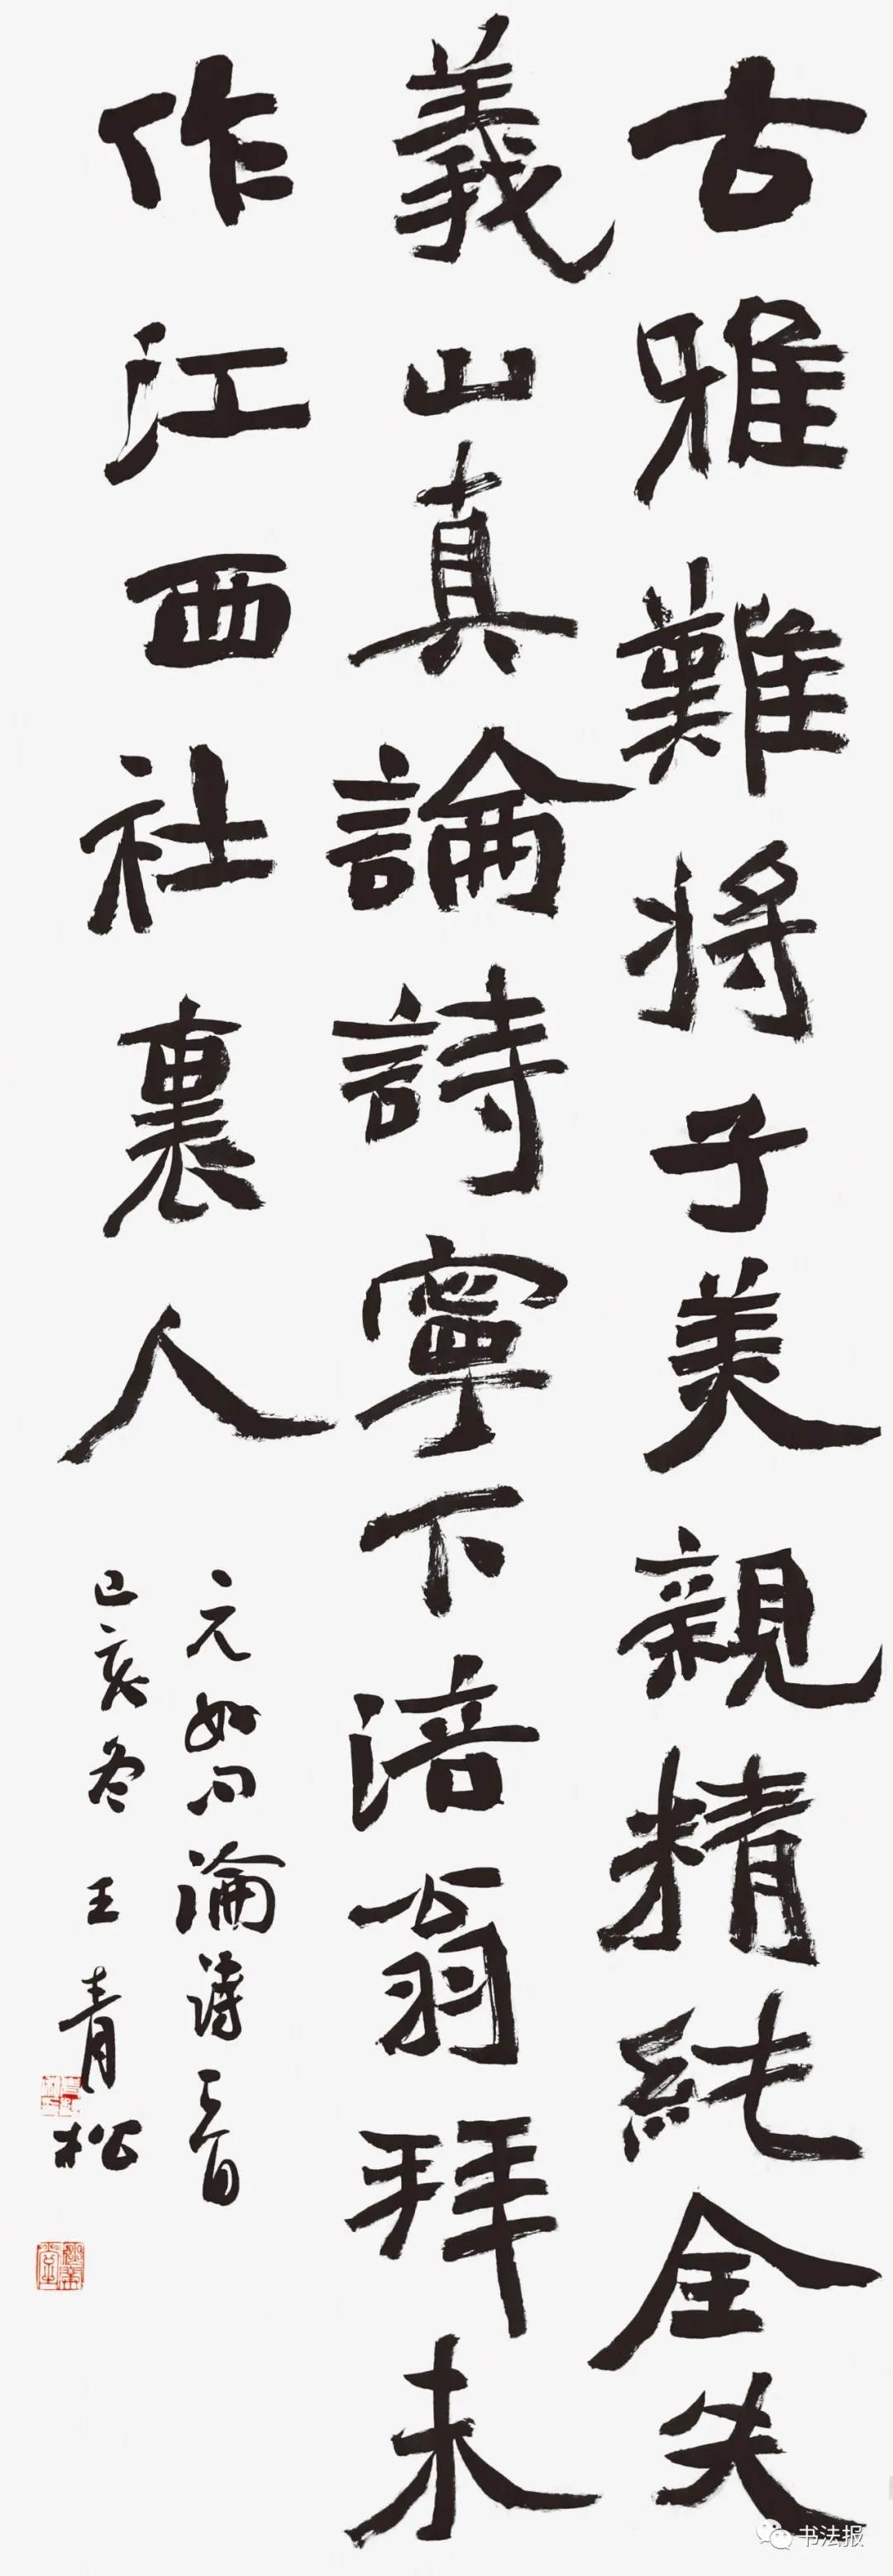 古雅難將子美親精純全失
義山真論詩寧下涪翁拜未
作江西社裏人
元好问論詩一首
己亥冬 王青松
书法报